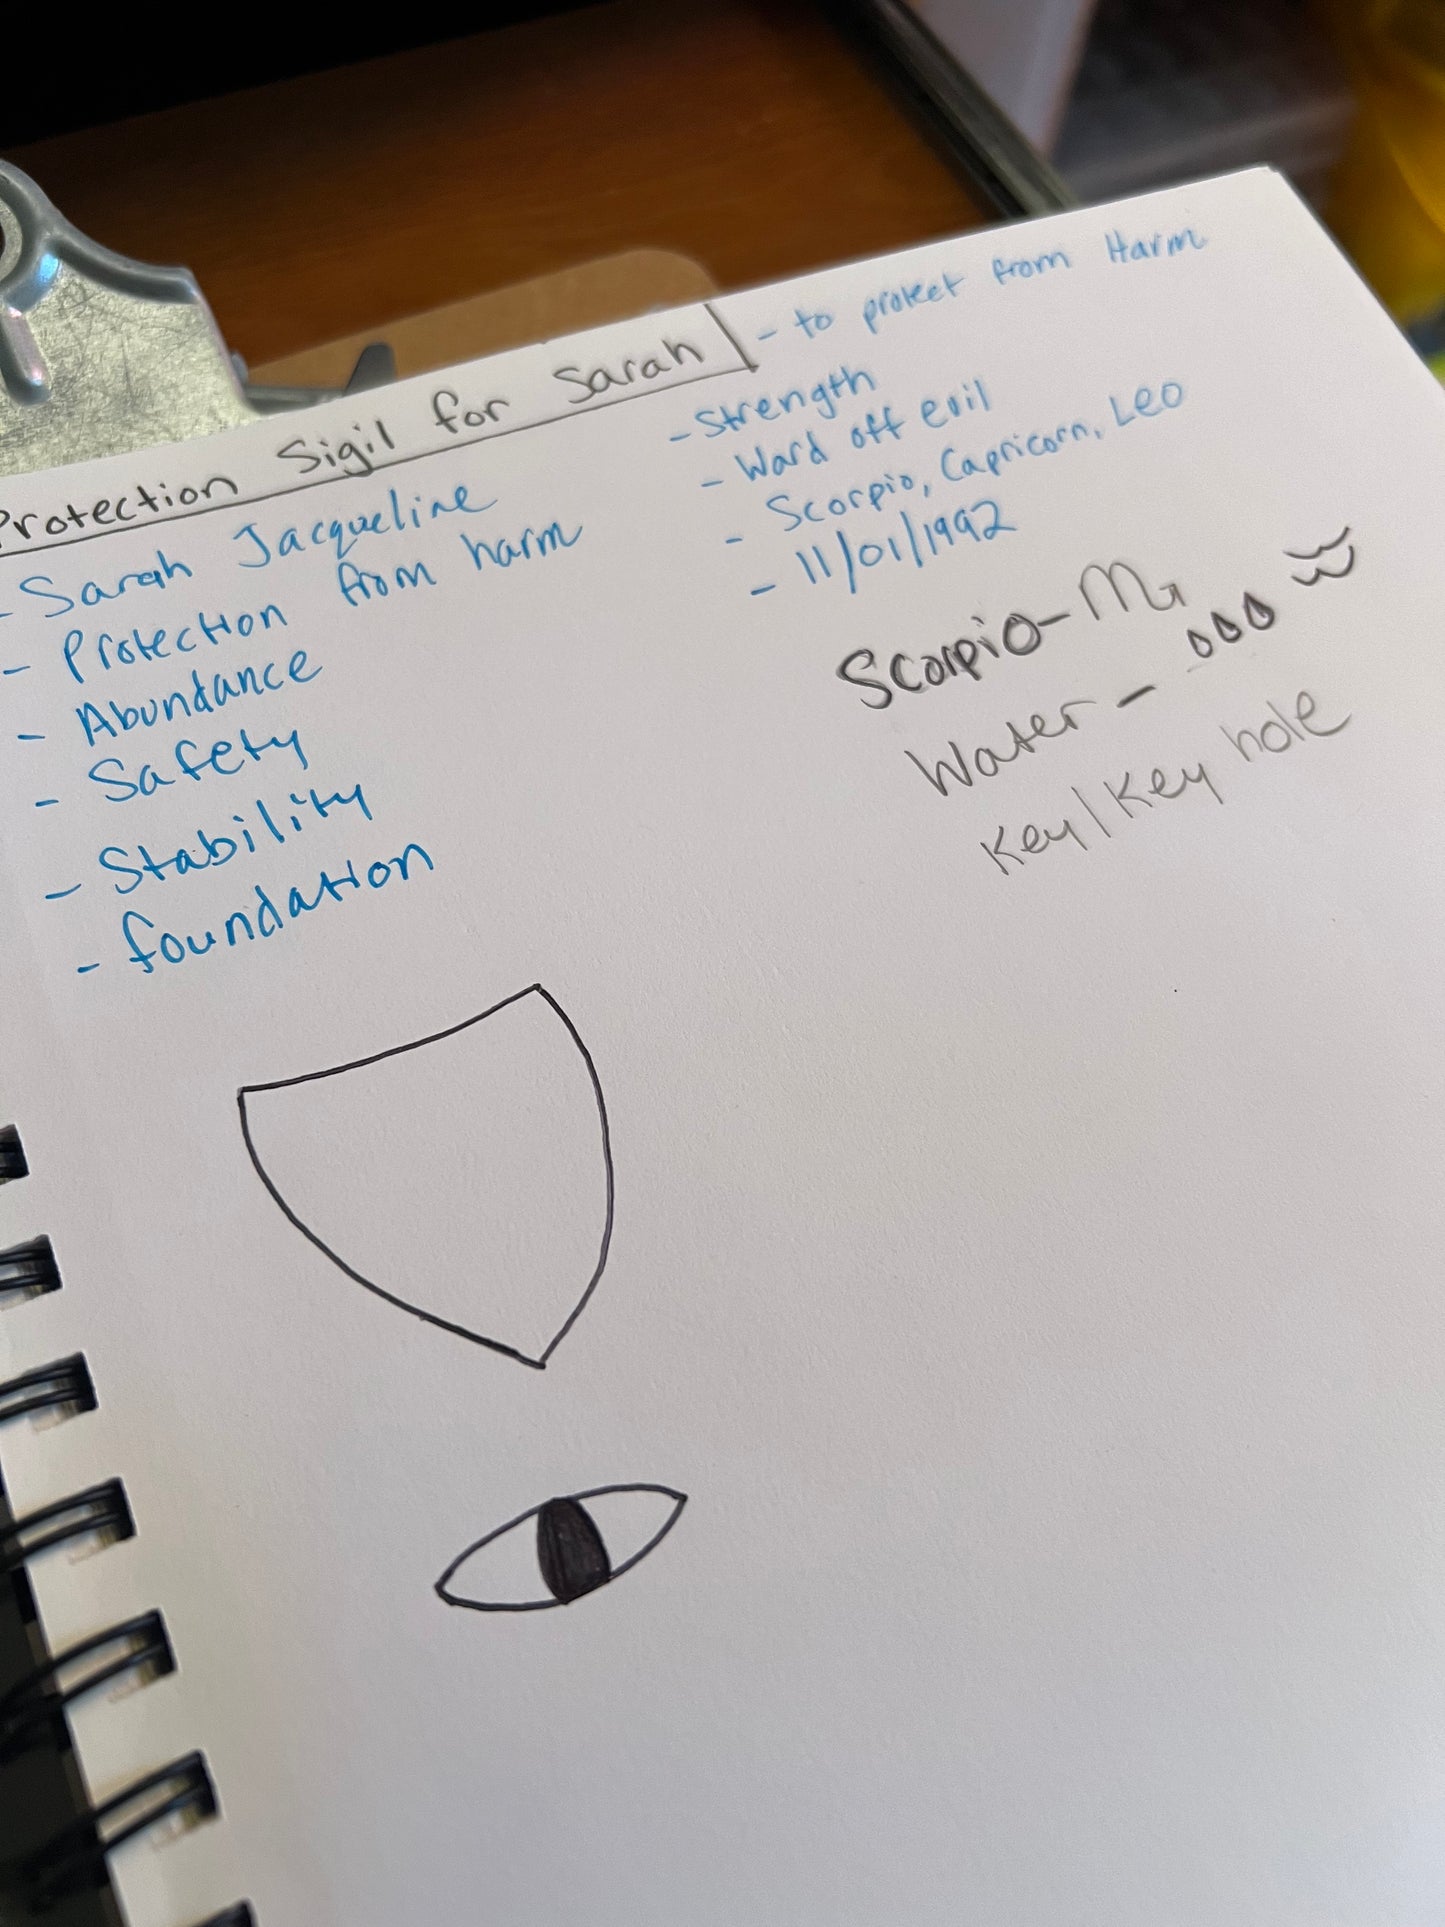 Protection Sigil for Sarah
- Sarah Jacqueline
- Protection from harm
- Abundance
- Safety
- Stability
- foundation
- to protect from Harm
- Strength
- Ward off evil
- Scorpio, Capricorn, Leo
- 11/01/1992
Scorpio - ♏
Water -
Key/Key hole